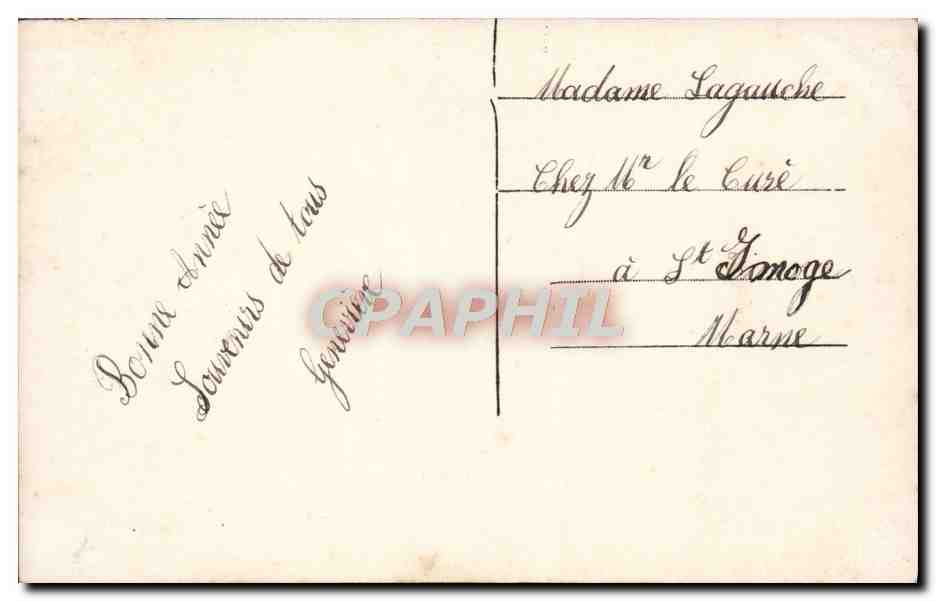 Bonne Année
Souvenirs de tous
Geneviève
Madame Lagauche
Chez Mr le Curé
à St Imoge
Marne
CPAPHIL